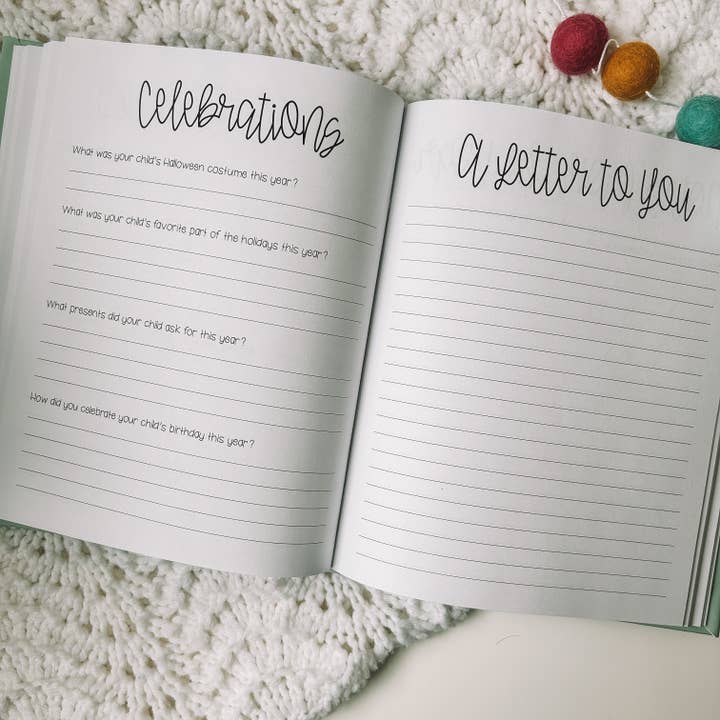 Celebrations
What was your child's Halloween costume this year?
What was your child's favorite part of the holidays this year?
What presents did your child ask for this year?
How did you celebrate your child's birthday this year?
A Letter to You